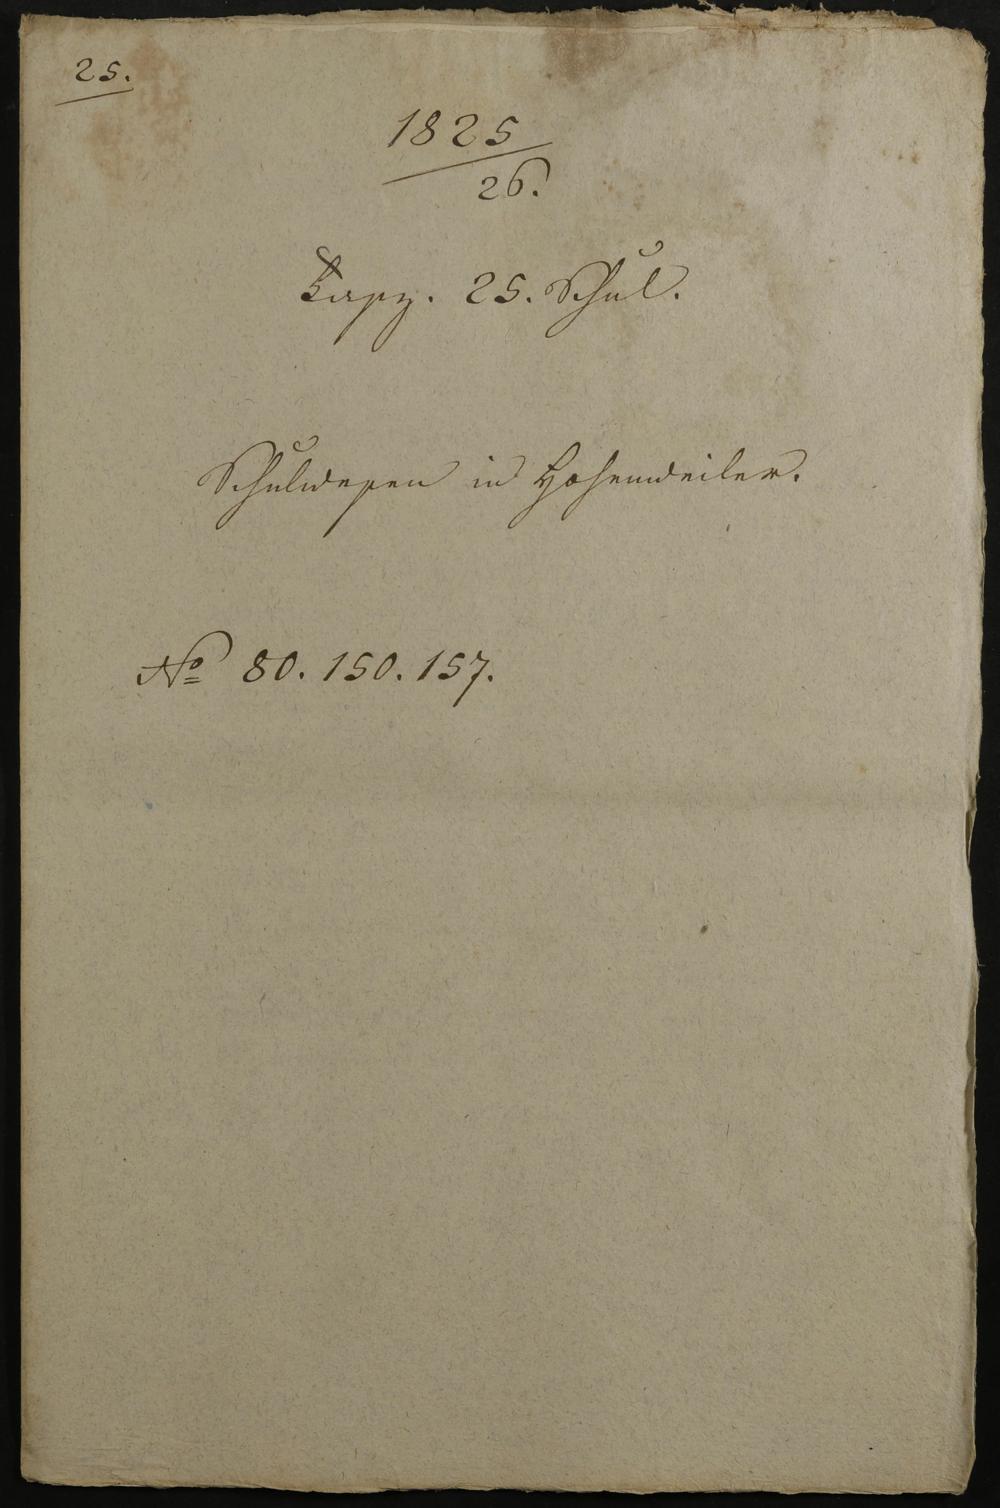 25.
1825
26.
Fasz. 25. Schul.
Schulwesen in Hohenweiler.
No 80. 150. 157.